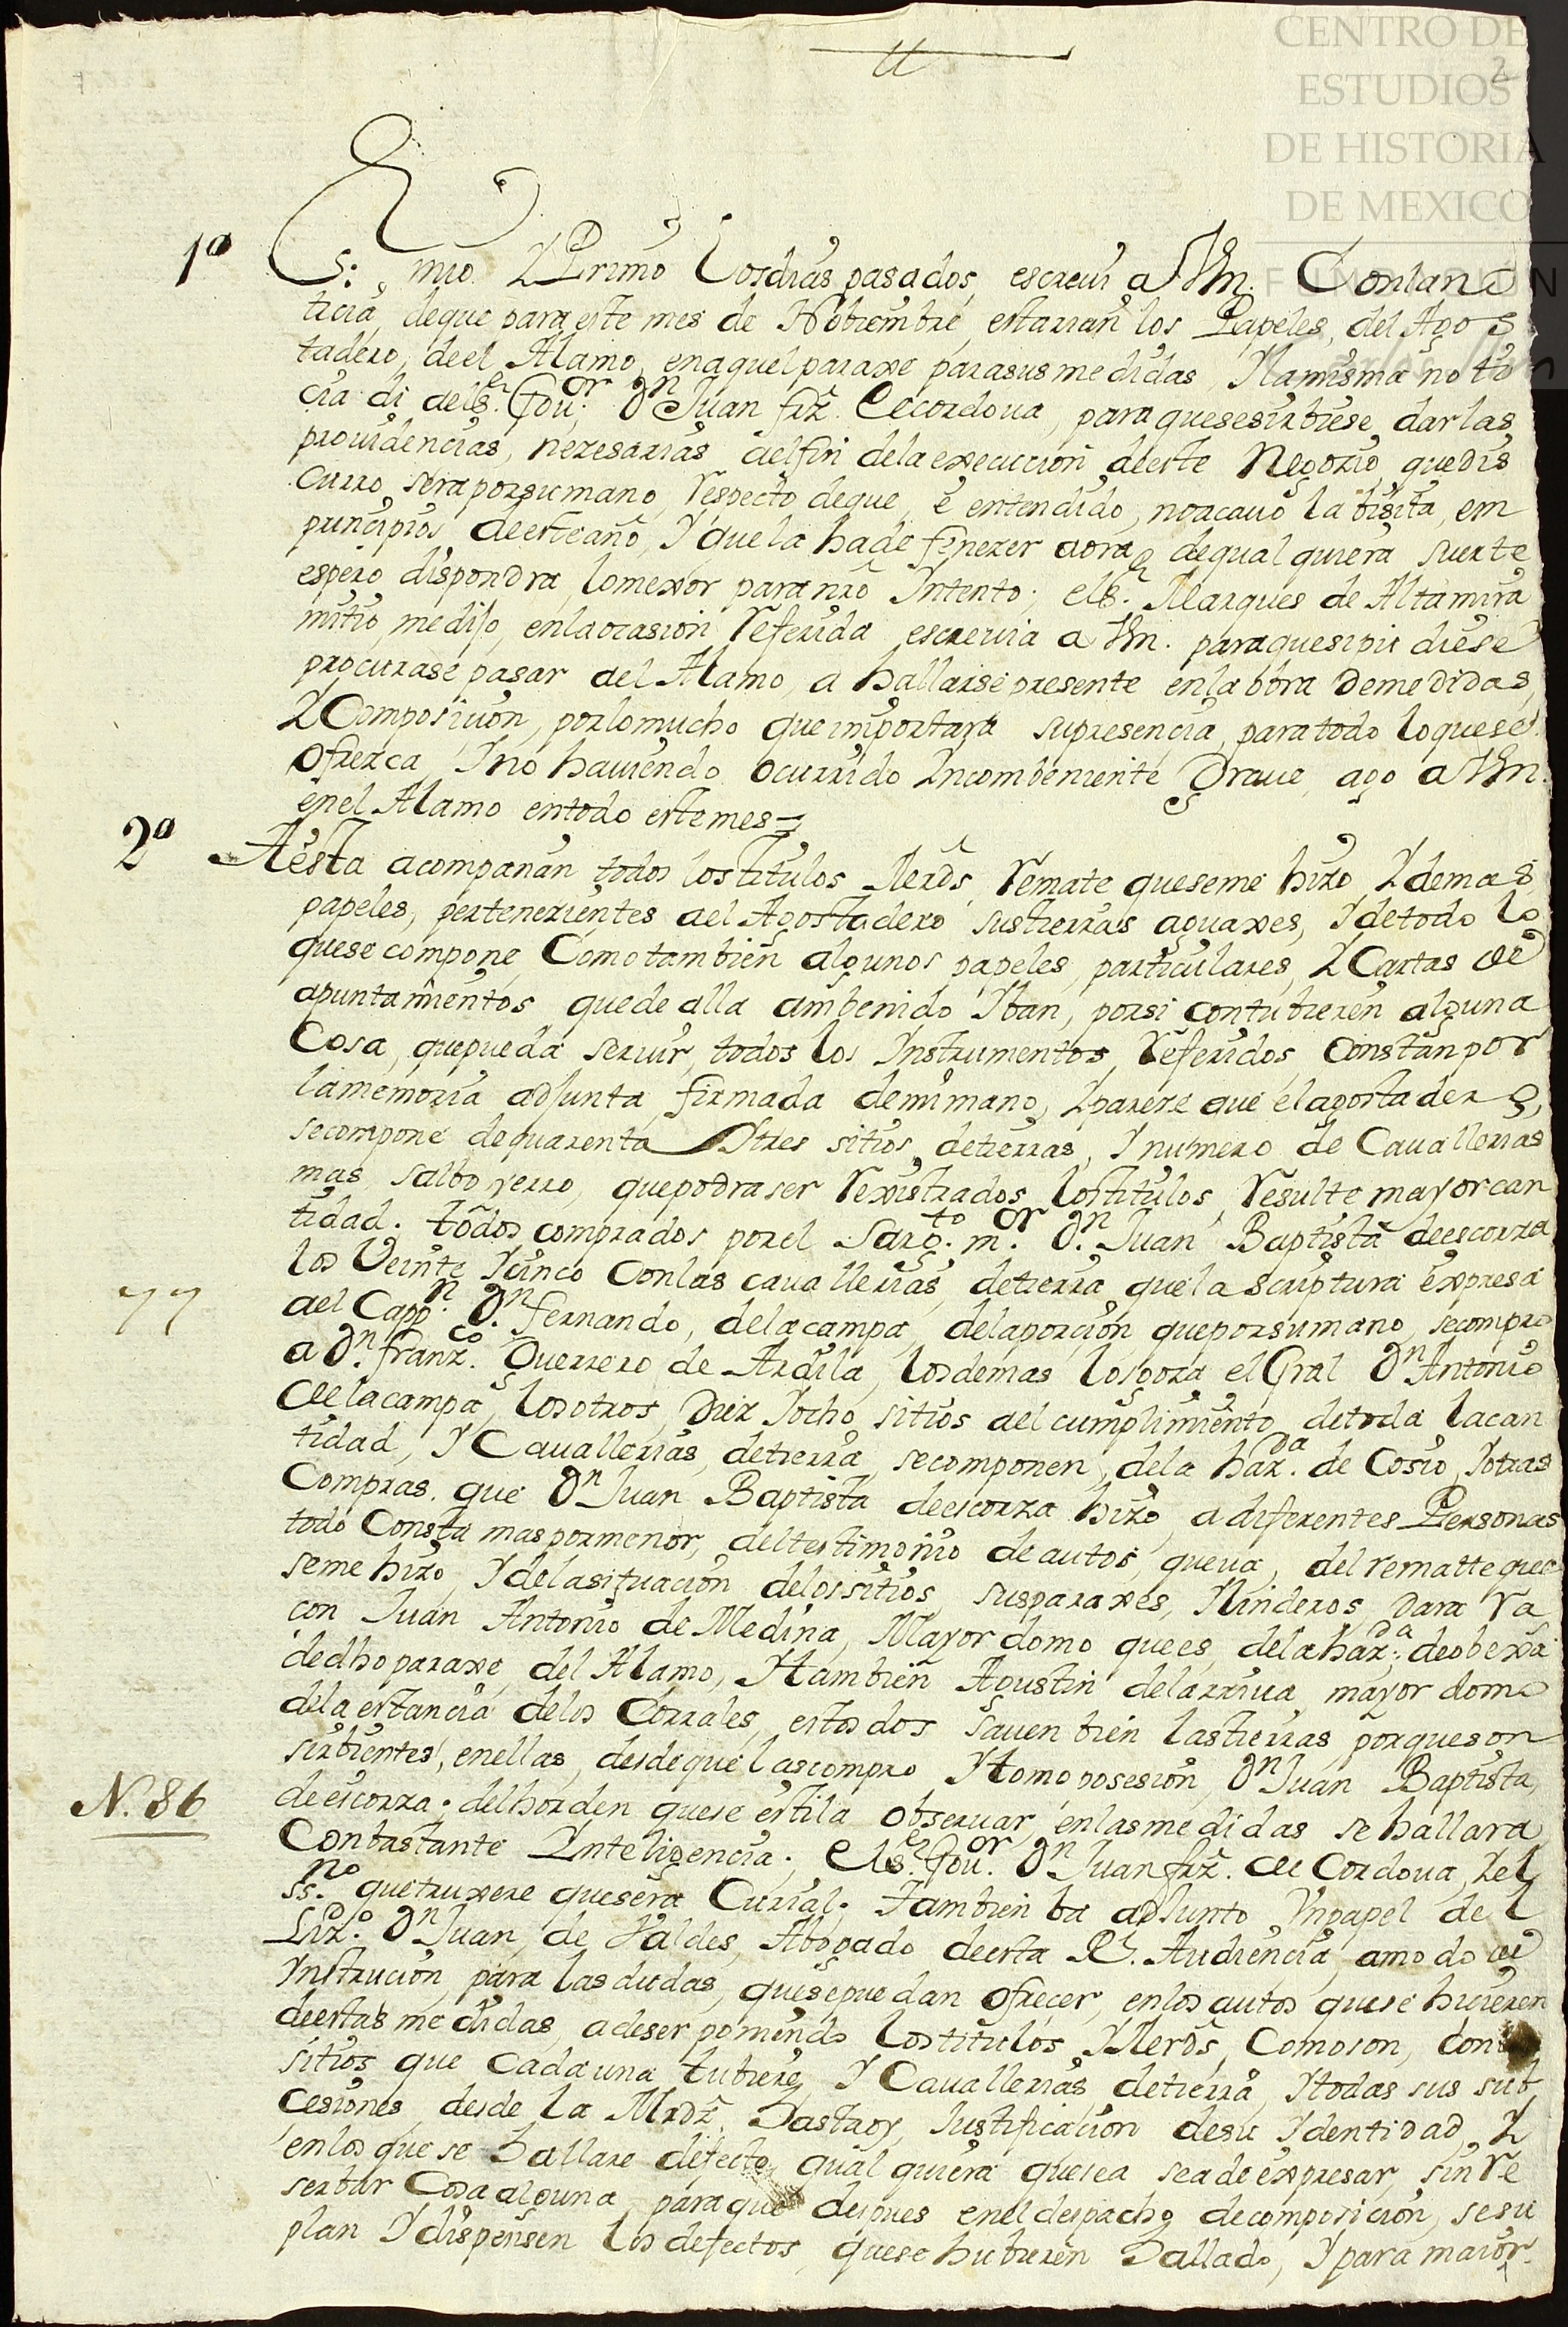 CENTRO DE
ESTUDIOS
DE HISTORIA
DE MEXICO
FUNDACIÓN
2
1º S.r mio Y Primo los dias pasados, escreui a Vm. Con la no
ticia, de que para este mes de Nobiembre, estarian los Papeles, del Agos
tadero, de el Alamo, en aquel paraxe para sus medidas Y la misma noti
cia di a el S.r Gou.or D.n Juan frz. de cordoua, para que se sirbiese, dar las
prouidencias, nezesarias a el fin de la execucion de este Negozio, que dis
curro, sera por su mano Respecto de que, e entendido, no acauo la bisita, em
principios de este año, Y que la ha de fenezer aora, de qual quiera suerte
espero dispondra, lo mexor para nro Yntento; el S.r Marques de Altamira
mi tio, me dijo, en la ocasion Referida escreuia a Vm. para que si pudiese
procurase pasar a el Alamo, a hallarse presente en la obra de medidas,
Y Composicion, por lo mucho que importara su presencia, para todo lo que se
Ofrezca, Y no hauiendo ocurrido Yncombeniente Graue, ago a Vm.
en el Alamo en todo este mes=
2º A esta acompañan todos los titulos Merds, Remate que se me hizo, Y demas
papeles, pertenezientes a el Agostadero sus tierras aguaxes, Y de todo lo
que se compone, Como tambien algunos papeles, particulares, Y Cartas de
apuntamientos que de alla am benido Y ban, por si contubieren alguna
Cosa, que pueda seruir, todos los Ynstrumentos, Referidos, Constan por
la memoria adjunta, firmada de mi mano, Y pareze que el agostadero,
se compone de quarenta Y tres sitios de tierras, Y numero de Cauallerias
mas, salbo yerro, que podra ser Rexistrados los titulos, Resulte mayor can
tidad. todos comprados por el Sarg.to m.or D.n Juan Baptista de escorza
los Veinte Y cinco Con las cauallerias, de tierra que la scriptura expresa
77 a el Capp.n D.n fernando, de la campa, de la porcion que por su mano, se compro
a D.n franz.co Guerrero de Ardila, los demas los goza el Gral D.n Antonio
de la campa, los otros, Diez Y ocho sitios a el cumplimiento, de toda la can
tidad, Y Cauallerias, de tierra, se componen, de la haz.da de Cosio, Y otras
Compras. que D.n Juan Baptista de escorza hizo, a diferentes Personas
todo Consta mas por menor, del testimonio de autos, que ua, del rematte que
se me hizo, Y de la situacion de los sitios, sus paraxes, Y linderos, dara Ra
con Juan Antonio de Medina, Mayor domo que es, de la haz.da de obexa
de dho paraxe, del Alamo, Y tambien Agustin de larriua, mayor domo
de la estancia de los Corrales, estos dos sauen bien las tierras porque son
sirbientes, en ellas, desde que las compro, Y tomo posesion, D.n Juan Baptista,
N. 86 de escorza; del horden que se estila obseruar, en las medidas se hallara
Con bastante Ynteligencia; el S.r Gou.or D.n Juan frz. de Cordoua, Y el
ss.no que truxere que sera Curial. Tambien ba adjunto Vn papel de l
Liz.do D.n Juan, de Valdes, Abogado de esta Rl. Audiencia, a modo de
Ynstrucion, para las dudas, que se puedan ofrecer, en los autos que se hicieren
de estas medidas, a de ser poniendo los titulos, Y Merds, Como son, con
sitios que Cada una tubiere, Y Cauallerias de tierra, Y todas sus sub
cesiones, desde la Mrd, hasta oy, Justificacion de su Ydentidad, Y
en los que se hallare defecto, qual quiera que sea se a de expresar, sin Re
serbar Cosa alguna, para que despues en el despacho de composicion, se su
plan Y dispensen los defectos, que se hubieren hallado, Y para maior